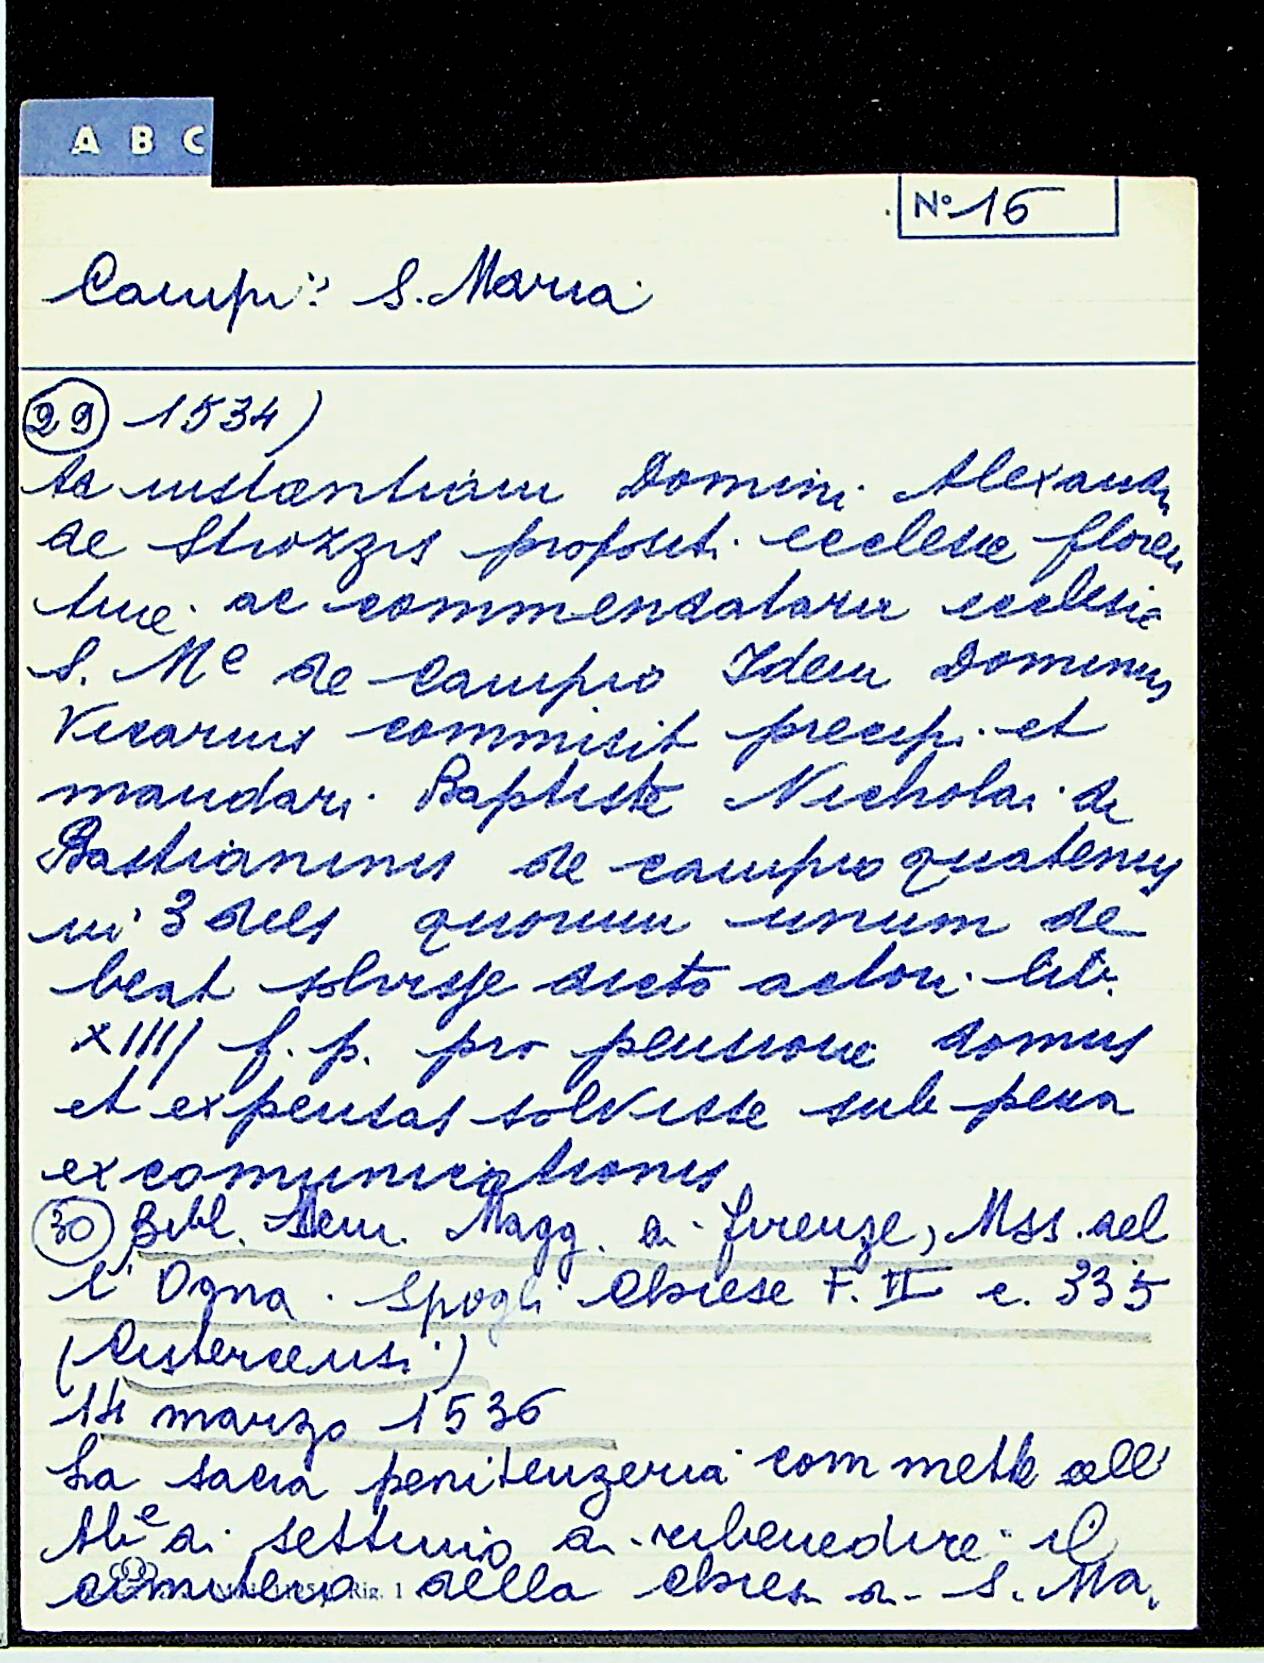 A B C
N° 16
Campi: S. Maria
29 1534)
Ad instantiam Domini Alexandri
de Strozzis propositi ecclesie floren
tine ac commendatarii ecclesie
S. Me de Campio Idem Dominus
Vicarius commisit precipi et
mandari Baptiste Nicholai de
Bastianinis de campio quatenus
in 3 dies quorum unum de
beat solvisse dicto actori lib.
XIIII f. p. pro pensione domus
et expensas solvisse sub pena
excomunicationis
30 Bibl. Sem. Magg. di Firenze, Mss. del
l'Ogna. Spogli Chiese F. II c. 335
(Cistercensi)
14 marzo 1536
La sacra penitenzeria commette all'
Abe di Settimo di ribenedire il
cimitero della chiesa di S. Ma.
Rig. 1